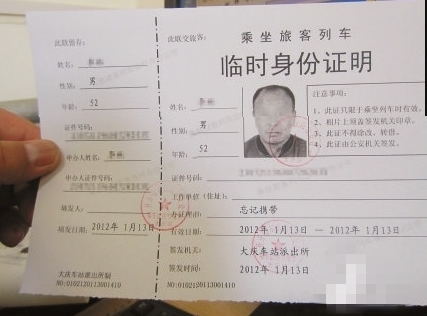 此联留存:
姓名:
性别:
男
年龄:
52
证件号码:
申办人姓名:
申办人证件号码:
填发人:
填发日期:
2012年 1月13日
大庆车站派出所制
NO:010212011300 1410
此联交旅客:
乘坐旅客列车
临时身份证明
姓名:
性别:
男
年龄:
52
注意事项:
1、此证只限于乘坐列车时有效。
2、相片上须盖签发机关印章。
3、此证不得涂改、转借。
4、此证由公安机关签发。
证件号码:
工作单位(住址):
办证理由:
忘记携带
有效日期:
2012年 1月13日 — 2012年 1月13日
签发机关:
大庆车站派出所
签发时间:
2012年 1月13日